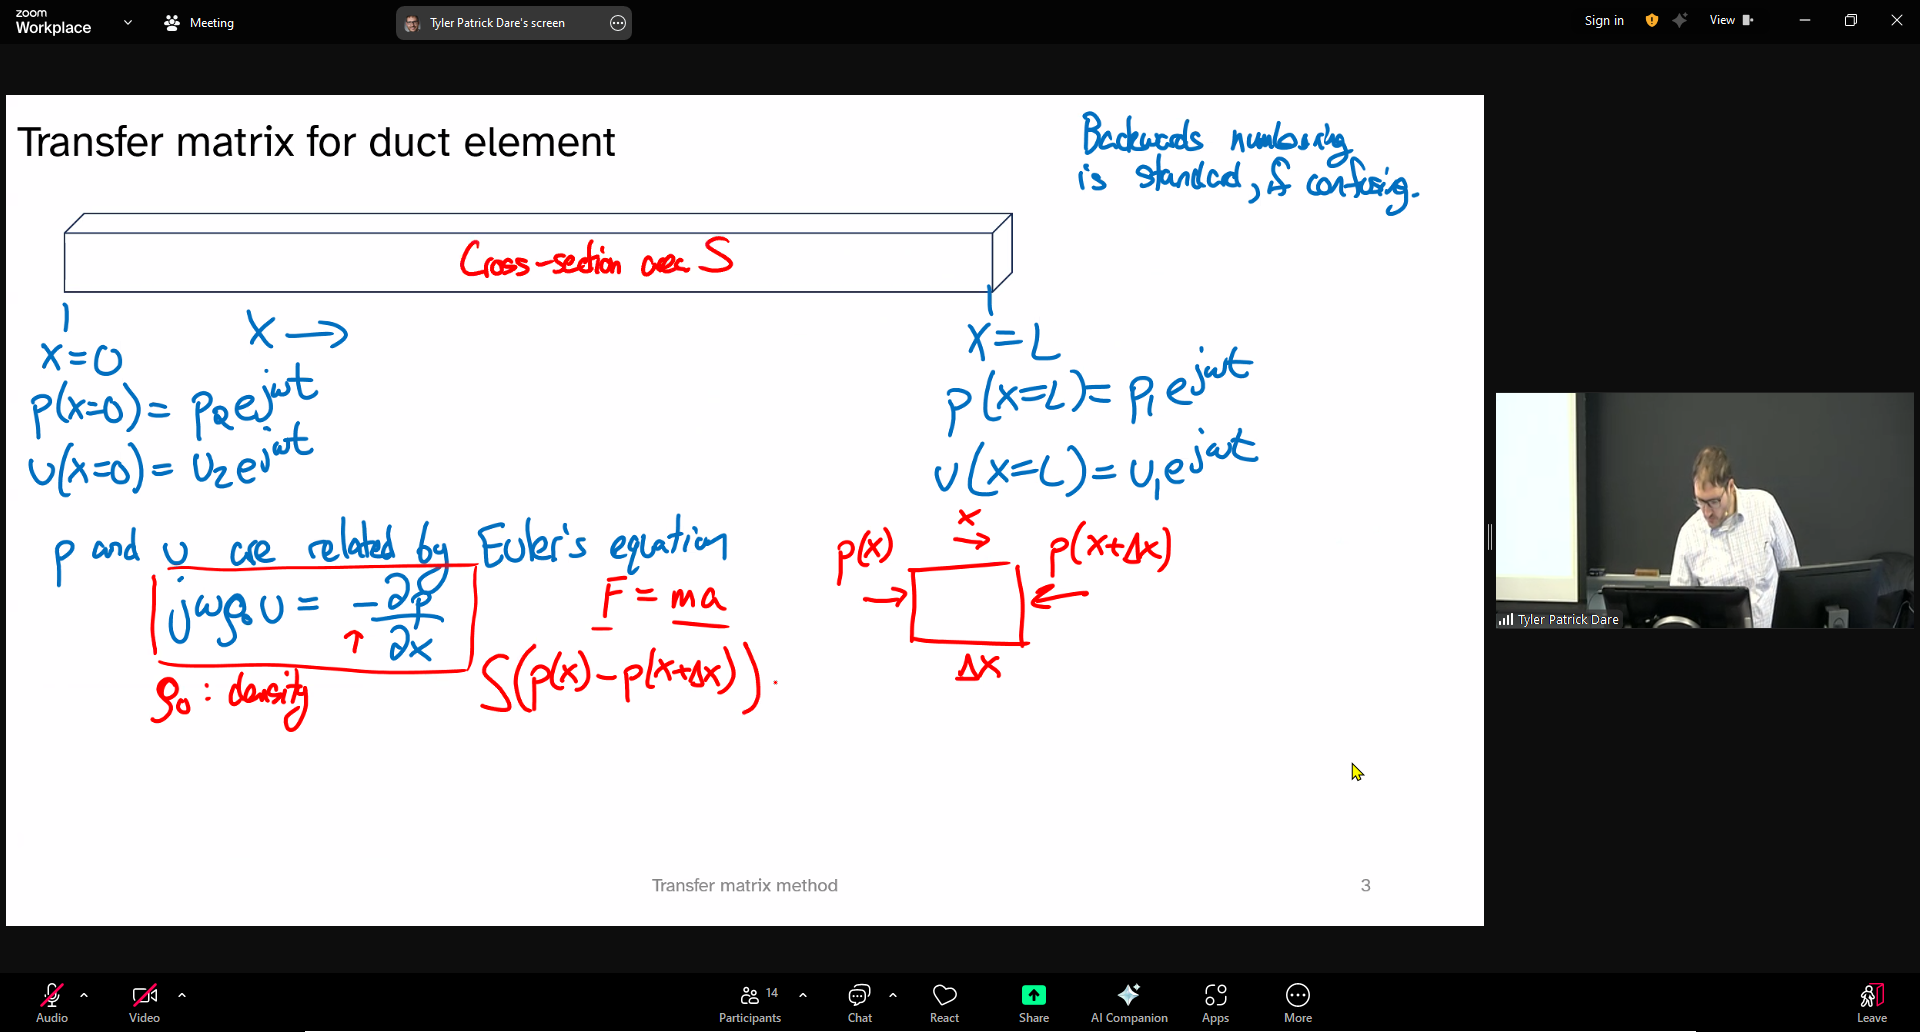 zoom
Workplace
Meeting
Tyler Patrick Dare's screen
Sign in
View
Transfer matrix for duct element
Backwards numbering
is standard, if confusing.
Cross-section area S
x=0
x→
x=L
p(x=0)= p₂e^jωt
p(x=L)= p₁e^jωt
u(x=0)= u₂e^jωt
u(x=L)= u₁e^jωt
p and u are related by Euler's equation
jωρ₀u = -∂p/∂x
ρ₀ : density
F = ma
S(p(x)-p(x+Δx))
x
→
p(x)
p(x+Δx)
Δx
Transfer matrix method
3
Tyler Patrick Dare
Audio
Video
Participants
14
Chat
React
Share
AI Companion
Apps
More
Leave